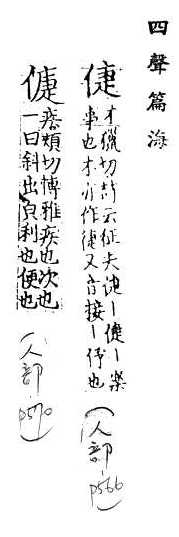 四聲篇海
倢
才獵切詩云征夫倢丨倢丨樂
事也本亦作又音接丨伃也
(人部 p566)
疾頰切博雅疾也次也
一曰斜出皃利也便也
(人部 p570)